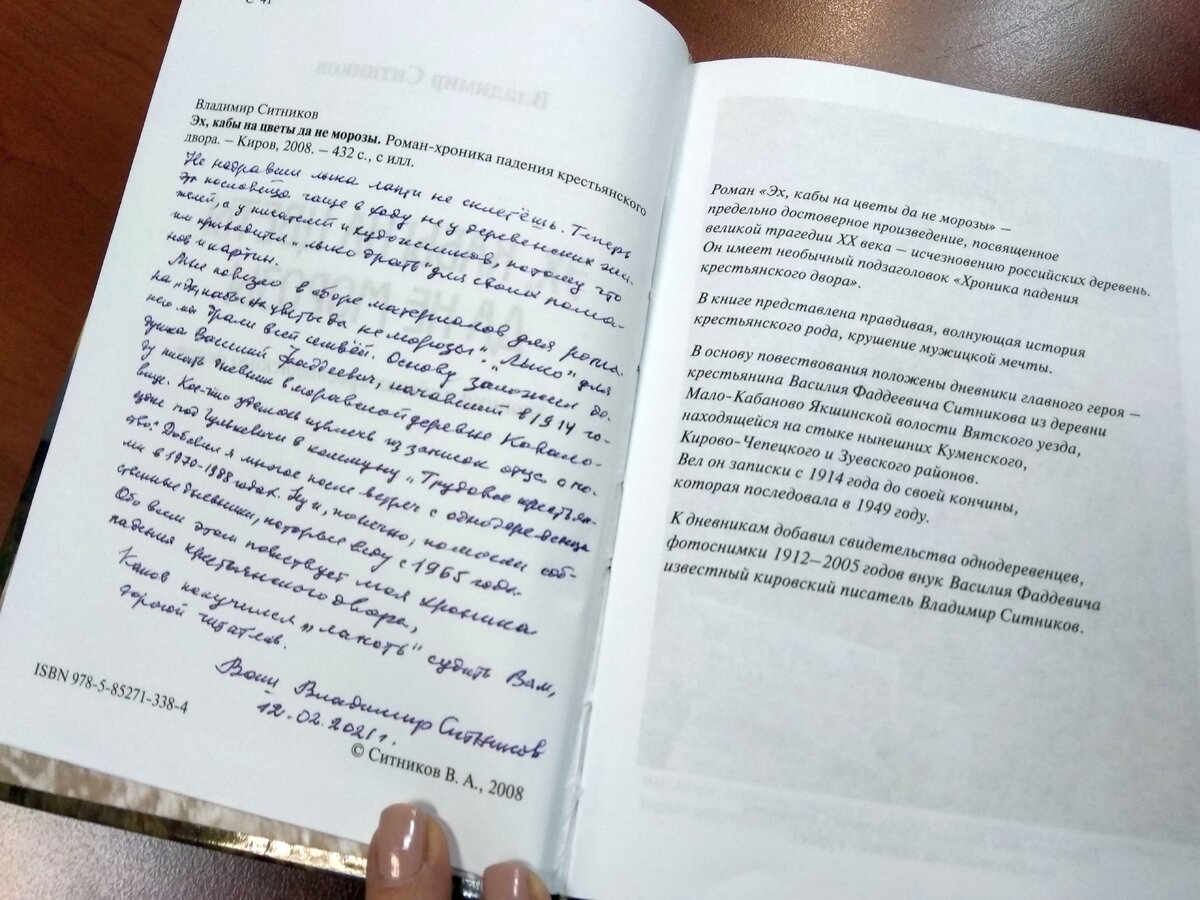 С 41
Владимир Ситников
Эх, кабы на цветы да не морозы. Роман-хроника падения крестьянского
двора. – Киров, 2008. – 432 с., с илл.
Не надравши лыка лапти не сплетёшь. Теперь
эта пословица чаще в ходу не у деревенских жи-
телей, а у писателей и художников, потому что
им приходится „лыко драть" для своих рома-
нов и картин.
Мне повезло в сборе материалов для рома-
на „Эх, кабы на цветы да не морозы". „Лыко" для
него мы драли всей семьёй. Основу заложил де-
душка Василий Фаддеевич, начавший в 1914 го-
ду писать дневник в моравской деревне
вице. Кое-что удалось извлечь из записок отца о по-
ездке под Гулькевичи в коммуну „Трудовое крестьян-
ство". Добавил я многое после встреч с однодеревенца
ми в 1970-1988 годах. Ну и, конечно, помогли соб-
ственные дневники, которые веду с 1965 года.
Обо всем этом повествует моя хроника
падения крестьянского двора,
Каков получился „лапоть" судить Вам,
дорогой читатель.
Ваш Владимир Ситников
12.02.2021г.
ISBN 978-5-85271-338-4
© Ситников В. А., 2008
Роман «Эх, кабы на цветы да не морозы» –
предельно достоверное произведение, посвященное
великой трагедии XX века – исчезновению российских деревень.
Он имеет необычный подзаголовок «Хроника падения
крестьянского двора».
В книге представлена правдивая, волнующая история
крестьянского рода, крушение мужицкой мечты.
В основу повествования положены дневники главного героя –
крестьянина Василия Фаддеевича Ситникова из деревни
Мало-Кабаново Якшинской волости Вятского уезда,
находящейся на стыке нынешних Куменского,
Кирово-Чепецкого и Зуевского районов.
Вел он записки с 1914 года до своей кончины,
которая последовала в 1949 году.
К дневникам добавил свидетельства однодеревенцев,
фотоснимки 1912–2005 годов внук Василия Фаддеевича
известный кировский писатель Владимир Ситников.